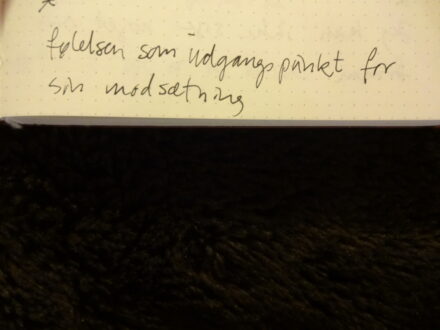 følelsen som udgangspunkt for
sin modsætning